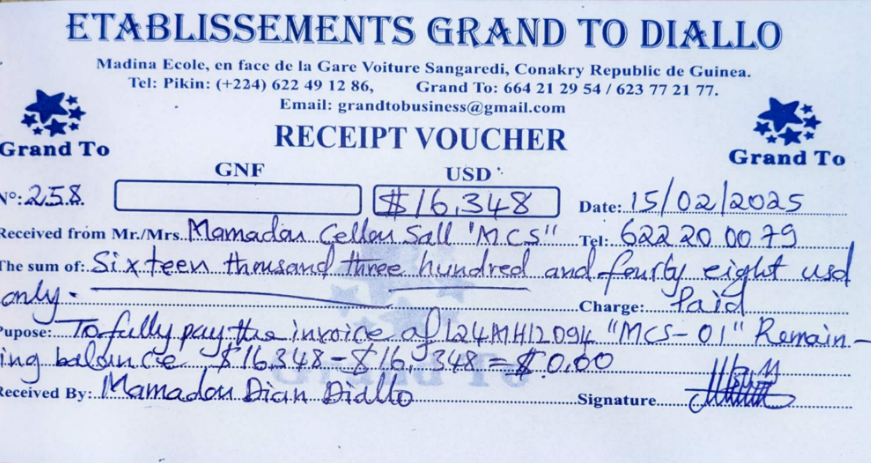 ETABLISSEMENTS GRAND TO DIALLO
Madina Ecole, en face de la Gare Voiture Sangaredi, Conakry Republic de Guinea.
Tel: Pikin: (+224) 622 49 12 86, Grand To: 664 21 29 54 / 623 77 21 77.
Email: grandtobusiness@gmail.com
Grand To
RECEIPT VOUCHER
Grand To
GNF USD
N°: 258. $16,348 Date: 15/02/2025
Received from Mr./Mrs. Mamadou Cellou Sall "MCS" Tel: 622 20 00 79
The sum of: Sixteen thousand three hundred and fourty eight usd
only. Charge: Paid
Pupose: To fully pay the invoice of 124MH12094 "MCS-01" Remain-
ing balance $16,348-$16,348=$0.00
Received By: Mamadou Dian Diallo Signature